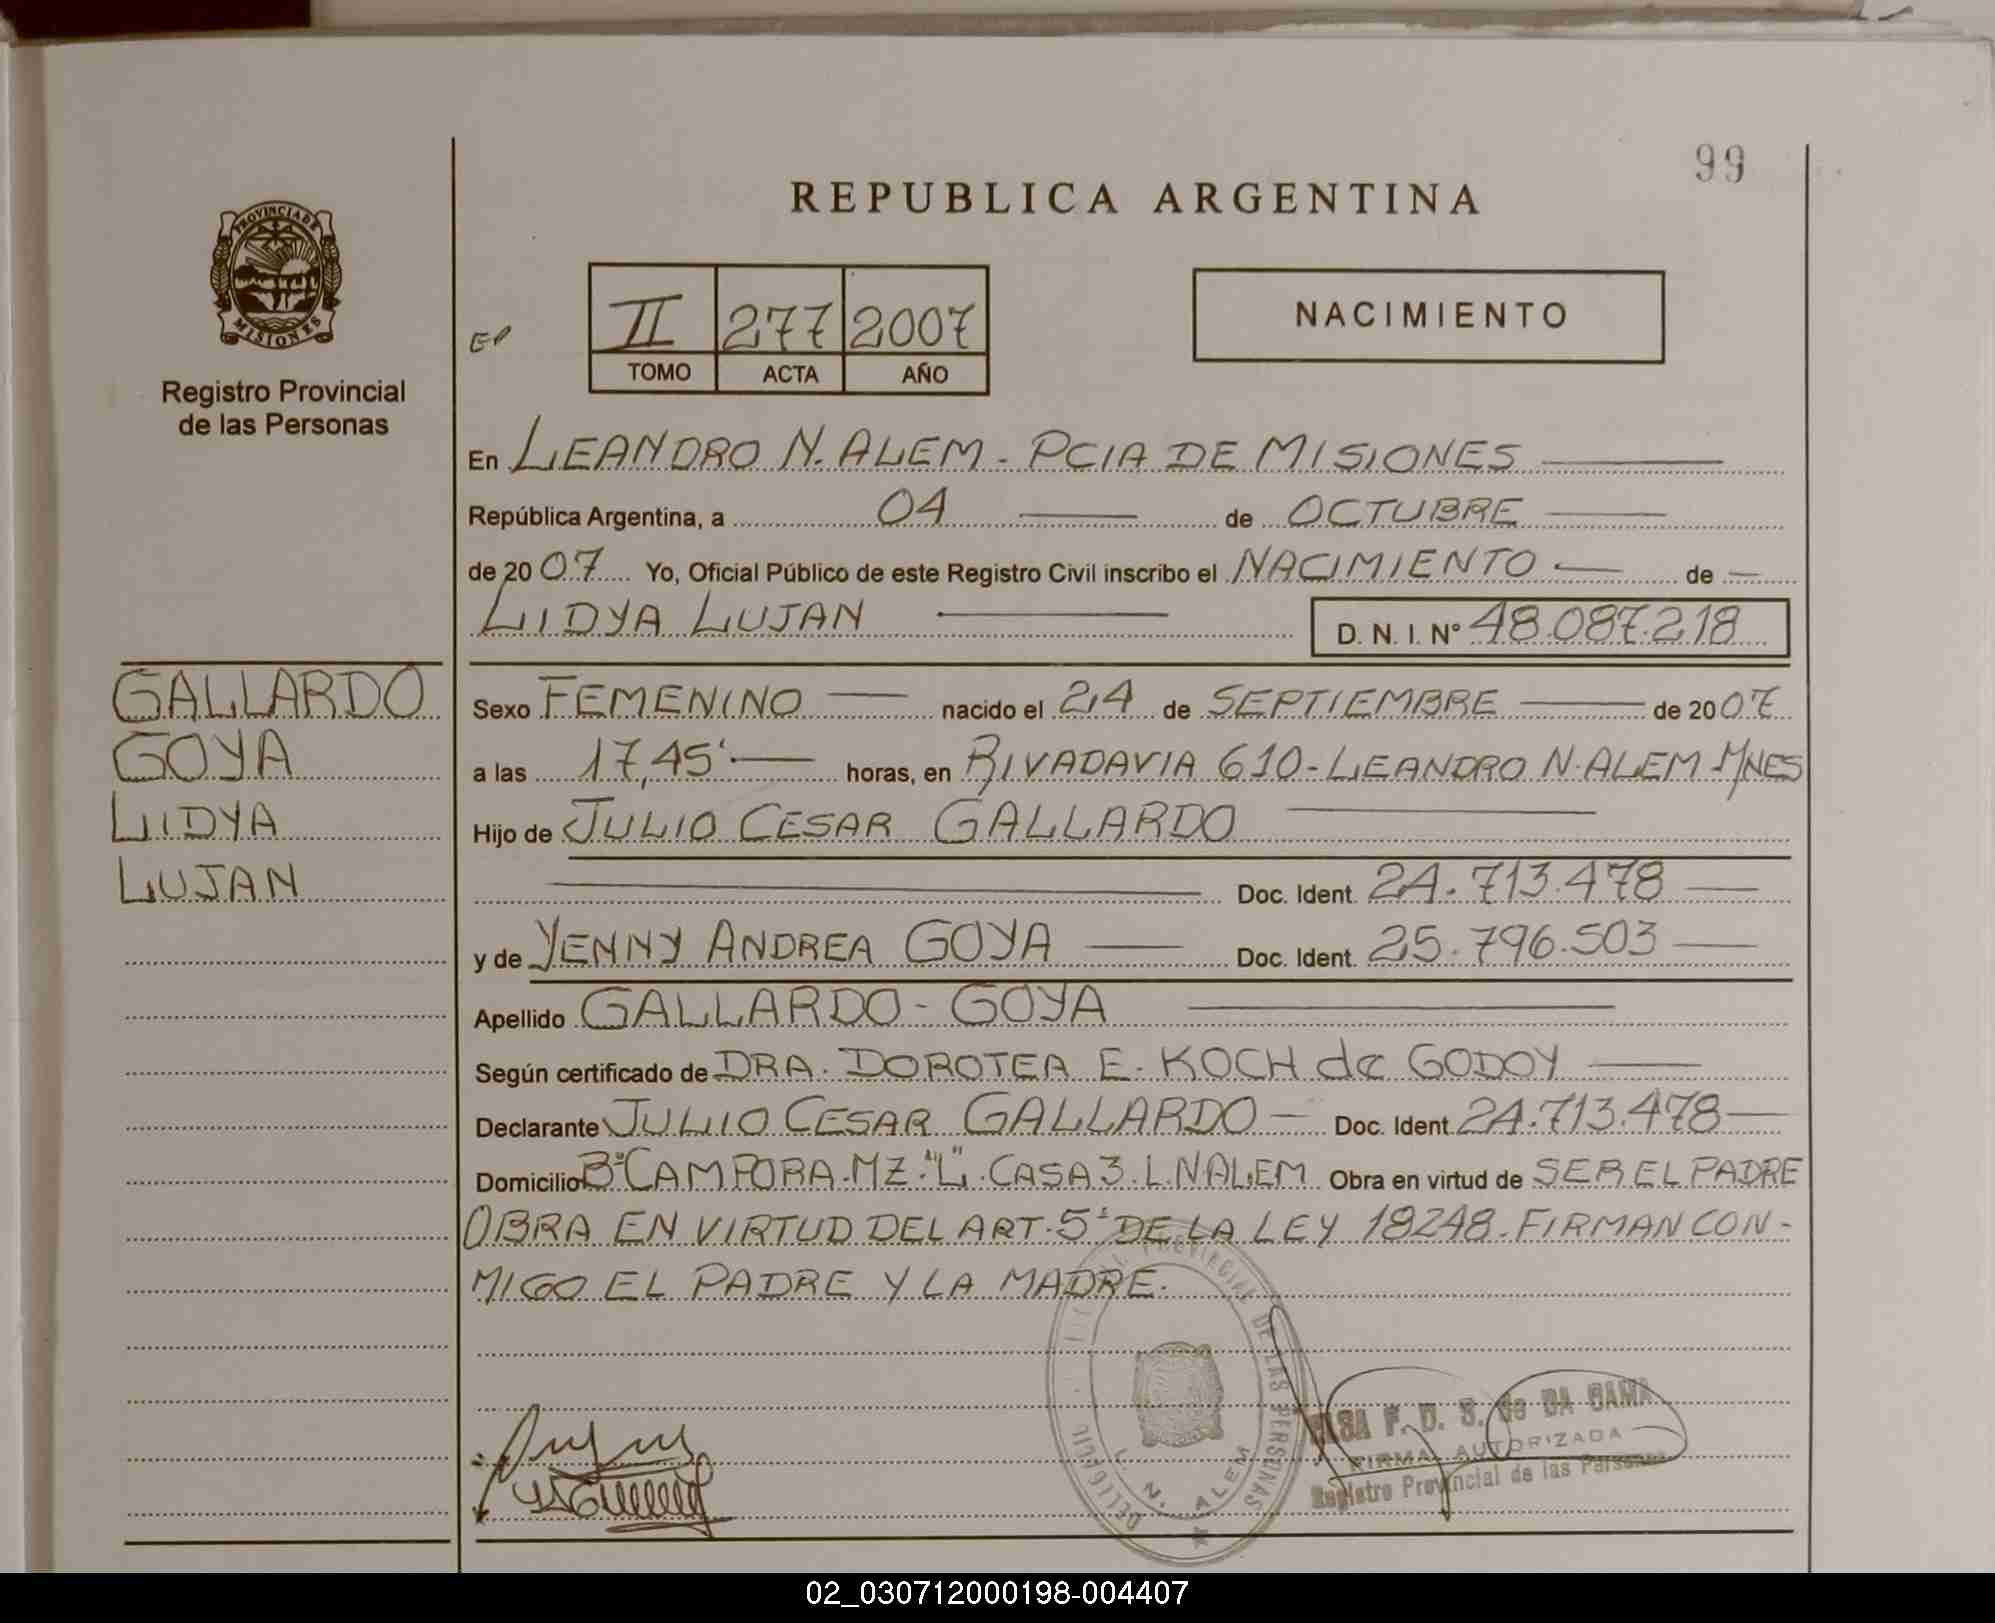 99
REPUBLICA ARGENTINA
PROVINCIA DE
MISIONES
Registro Provincial
de las Personas
II 277 2007
TOMO ACTA AÑO
NACIMIENTO
En LEANDRO N. ALEM - PCIA DE MISIONES
República Argentina, a 04 de OCTUBRE
de 2007 Yo, Oficial Público de este Registro Civil inscribo el NACIMIENTO de
LIDYA LUJAN D. N. I. Nº 48.087.218
GALLARDO
GOYA
LIDYA
LUJAN
Sexo FEMENINO nacido el 24 de SEPTIEMBRE de 2007
a las 17,45' horas, en RIVADAVIA 610 - LEANDRO N. ALEM MNES
Hijo de JULIO CESAR GALLARDO
Doc. Ident. 24.713.478
y de YENNY ANDREA GOYA Doc. Ident. 25.796.503
Apellido GALLARDO - GOYA
Según certificado de DRA. DOROTEA E. KOCH de GODOY
Declarante JULIO CESAR GALLARDO Doc. Ident. 24.713.478
Domicilio Bº CAMPORA. MZ. "L". CASA 3. L.N.ALEM Obra en virtud de SER EL PADRE
OBRA EN VIRTUD DEL ART. 5º DE LA LEY 18248. FIRMAN CON-
MIGO EL PADRE Y LA MADRE.
PROVINCIAL DE LAS PERSONAS
L. N. ALEM
ELSA F. D. S. de DA GAMA
FIRMA AUTORIZADA
Registro Provincial de las Personas
02_030712000198-004407